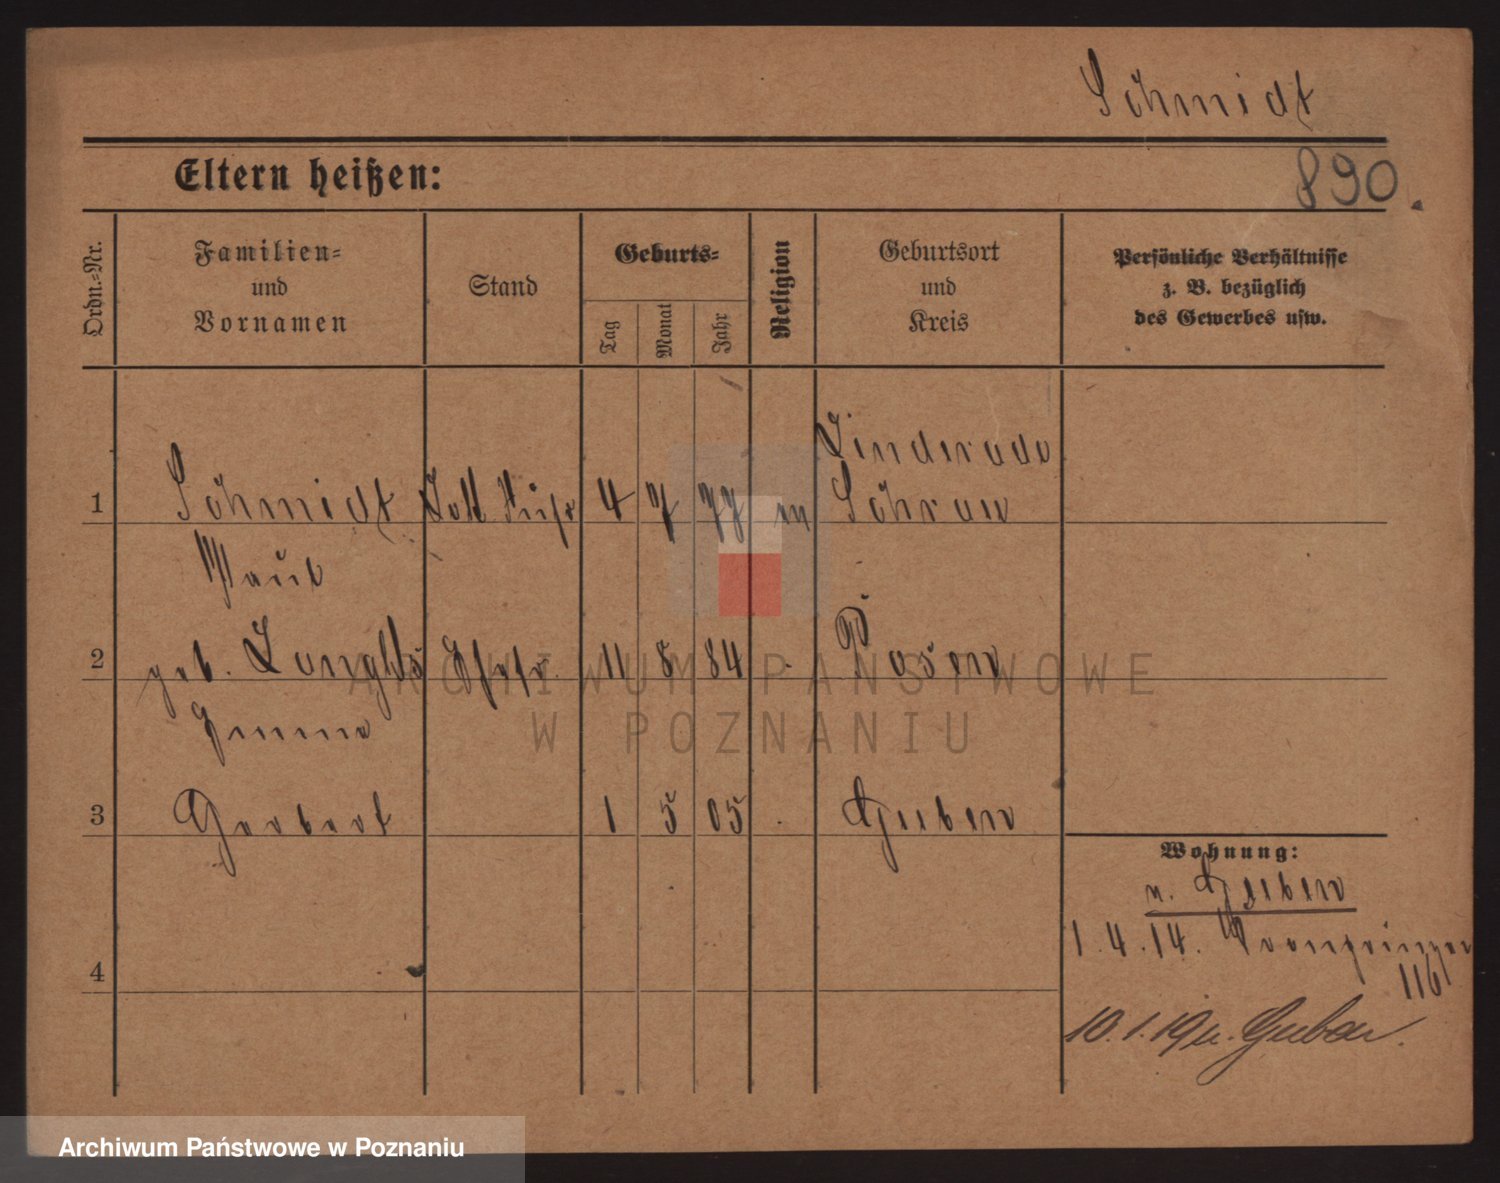 Schmidt
Eltern heißen:
890.
Ordn.-Nr.
Familien-
und
Vornamen
Stand
Geburts-
Tag
Monat
Jahr
Religion
Geburtsort
und
Kreis
Persönliche Verhältnisse
z. B. bezüglich
des Gewerbes usw.
Linderode
1 Schmidt 4 7 77 Sohrau
Paul
2 geb. Ehefr. 11 8 84 Posen
Emma
3 Herbert 1 5 05 Guben
Wohnung:
n. Guben
1.4.14. Kronprinzen
116
4
10.1.19 n. Guben.
ARCHIWUM PAŃSTWOWE
W POZNANIU
Archiwum Państwowe w Poznaniu